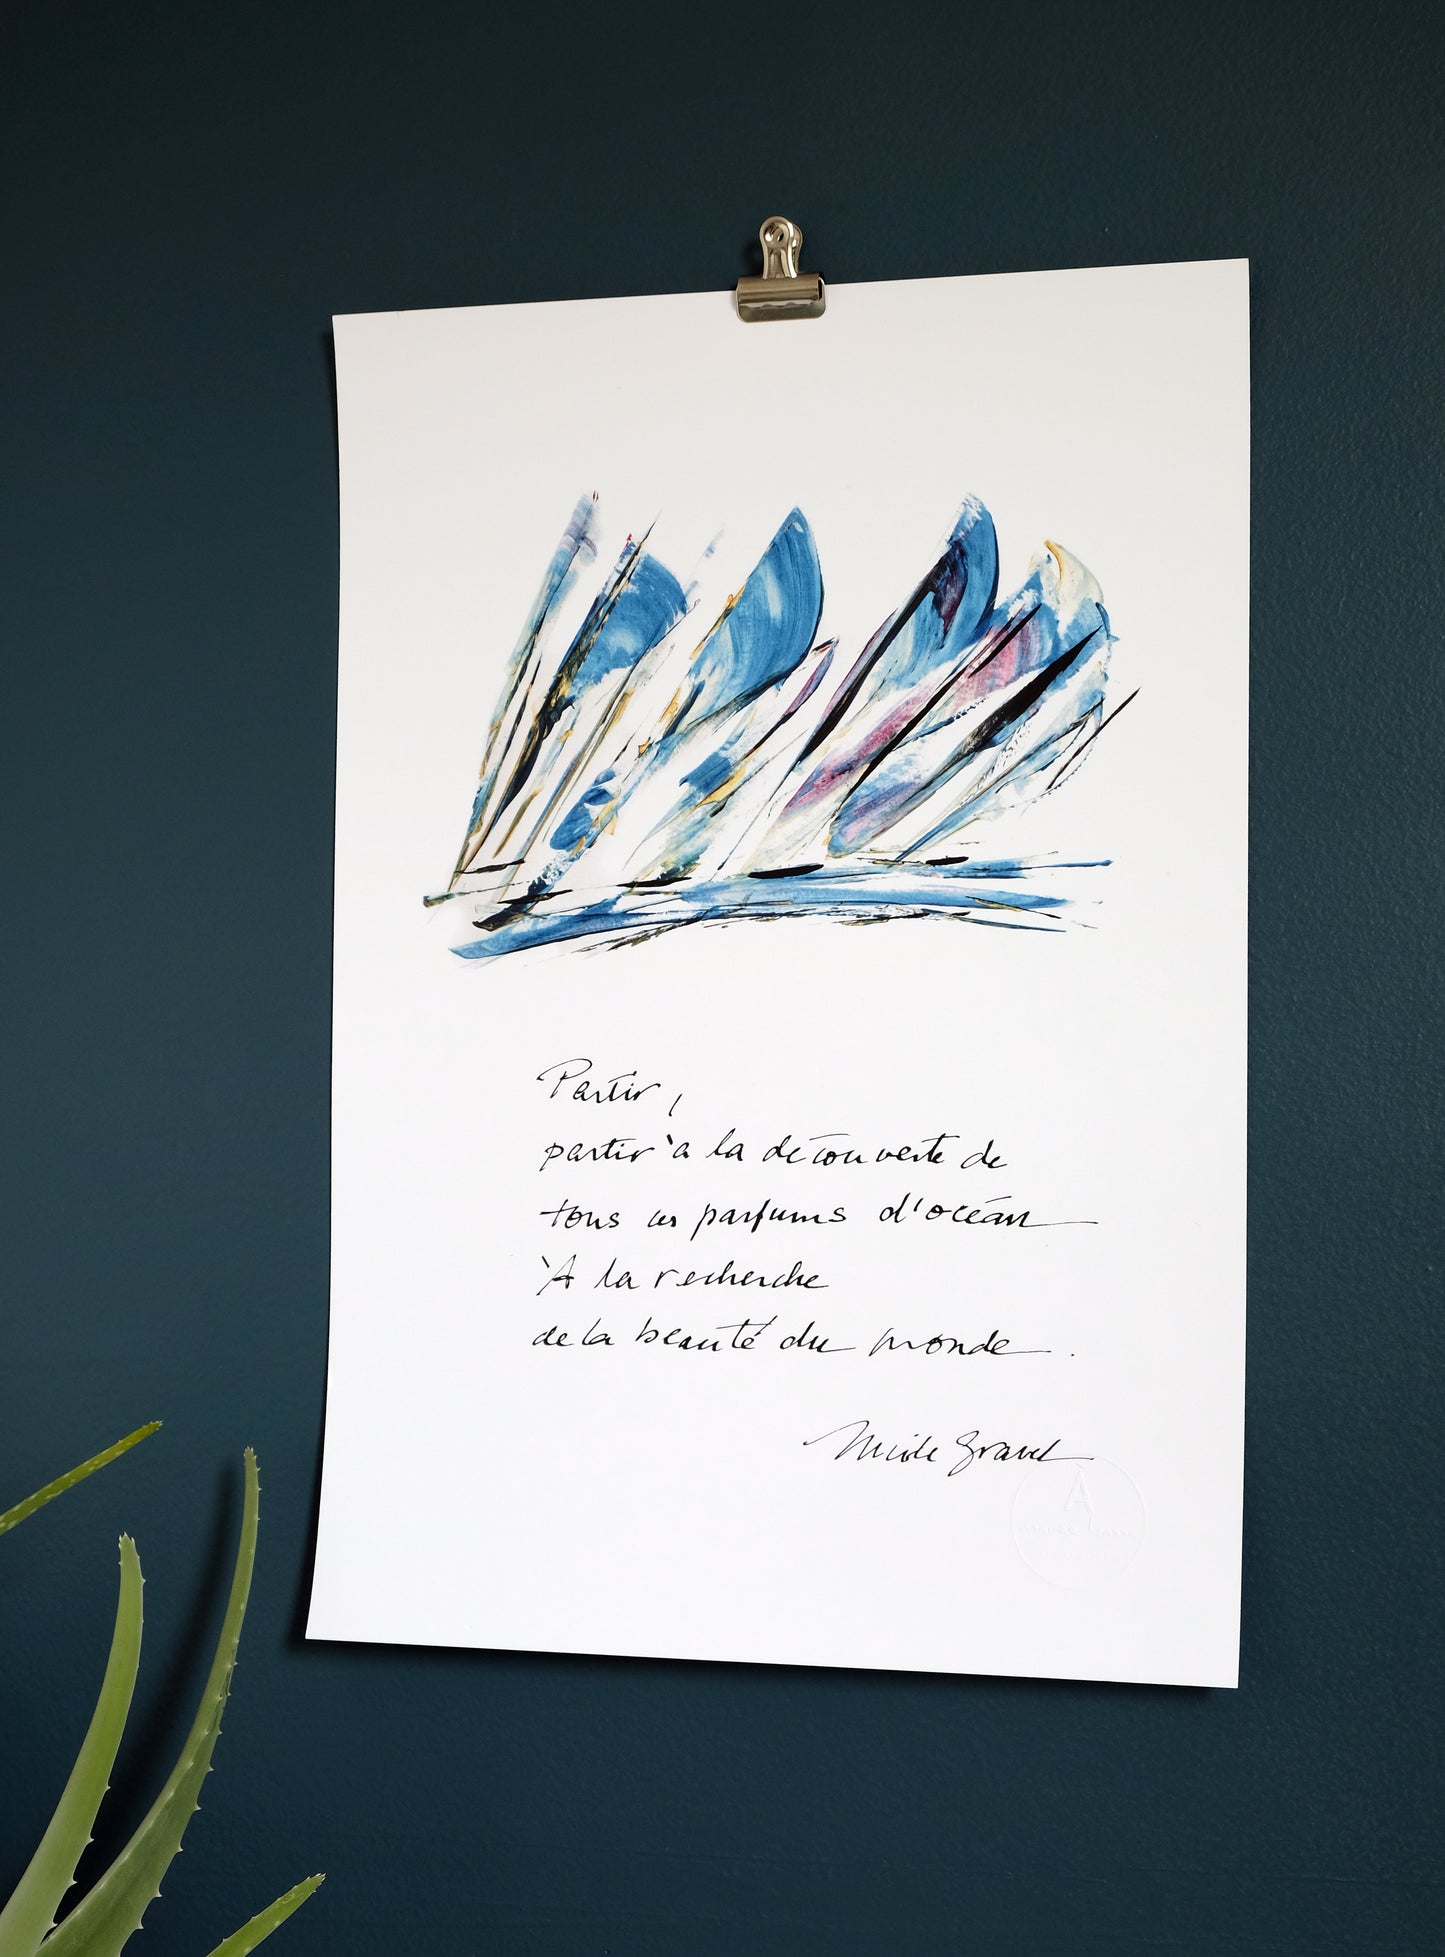 Partir,
partir à la découverte de
tous ces parfums d'océan
À la recherche
de la beauté du monde.
Nicole Gravel
A